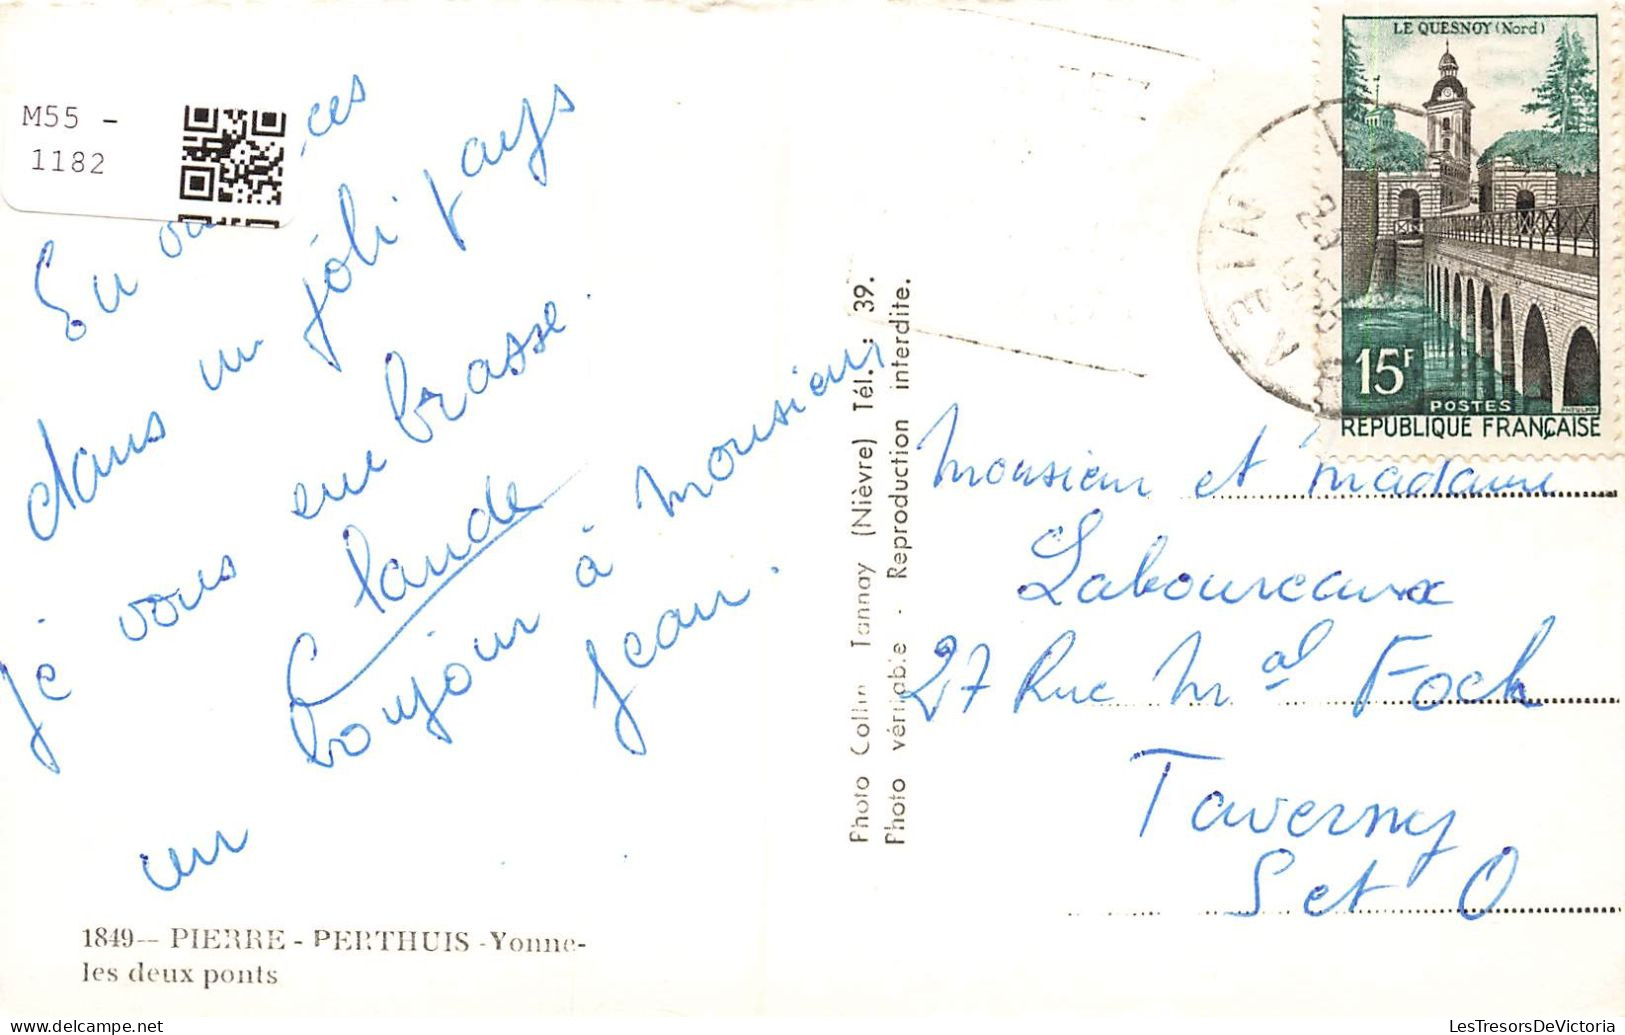 M55 -
1182
En va ces
dans un joli pays
je vous embrasse.
Claude
un bonjour à monsieur
Jean.
1849-- PIERRE - PERTHUIS - Yonne -
les deux ponts
Photo Collin Tannay (Nièvre) Tél. : 39.
Photo véritable - Reproduction interdite.
LE QUESNOY (Nord)
15F
POSTES
RÉPUBLIQUE FRANÇAISE
Monsieur et Madame
Laboureaux
27 Rue Mal Foch
Taverny
S et O
LesTresorsDeVictoria
www.delcampe.net